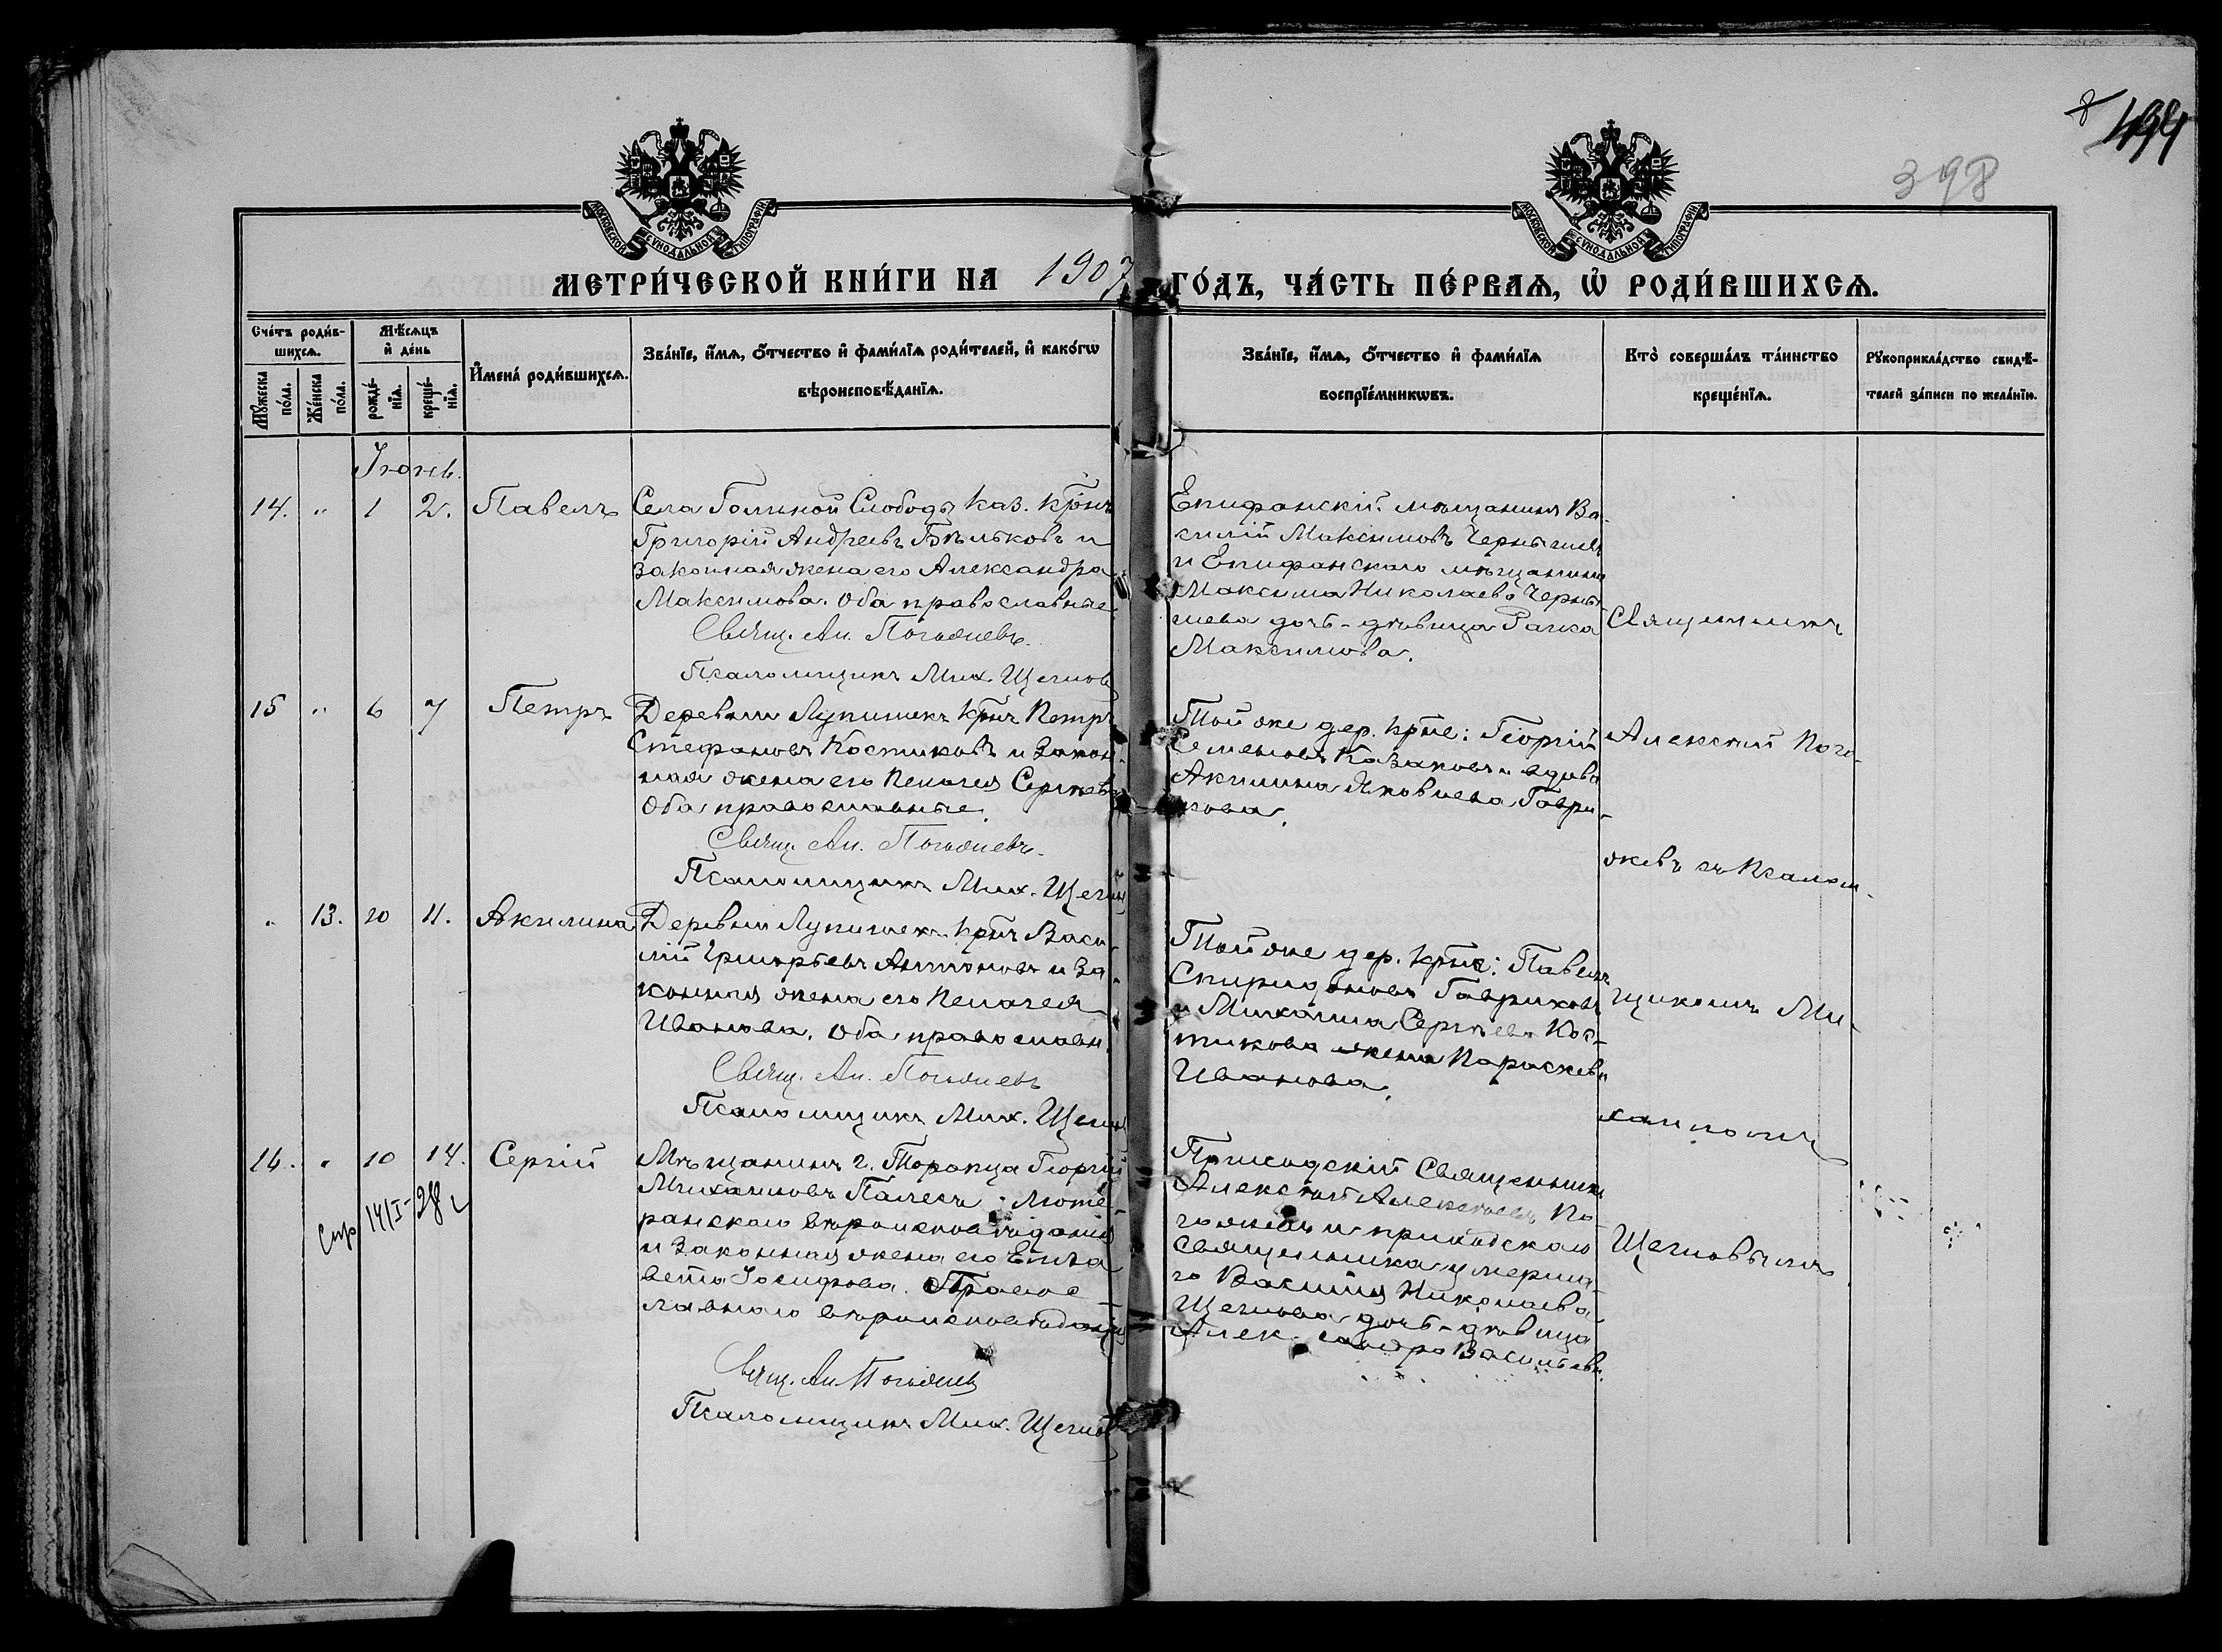 398
499
МОСКОВСКОЙ СѴНОДАЛЬНОЙ ТИПОГРАФІИ
МОСКОВСКОЙ СѴНОДАЛЬНОЙ ТИПОГРАФІИ
МЕТРИ́ЧЕСКОЙ КНИ́ГИ НА 1907 ГО́ДЪ, ЧА́СТЬ ПЕ́РВАѦ, Ѡ РОДИ́ВШИХСѦ.
Сче́тъ роди́в-
шихсѧ.
Мѣ́сѧцъ
и҆ де́нь
Му́жеска
по́ла.
Же́нска
по́ла.
рожде́-
нїѧ.
креще́-
нїѧ.
И҆мена́ роди́вшихсѧ.
Зва́нїе, и҆́мѧ, ѻ҆́тчество и҆ фами́лїѧ роди́телей, и҆ како́гѡ
вѣроисповѣ́данїѧ.
Зва́нїе, и҆́мѧ, ѻ҆́тчество и҆ фами́лїѧ
воспрїе́мникѡвъ.
Кто̀ соверша́лъ та́инство
креще́нїѧ.
Рꙋкоприкла́дство свидѣ́-
телей за́писи по жела́нїю.
Іюнь.
14. " 1 2. Павелъ
Села Голиной Слободы Каз. крнъ
Григорій Андреевъ Бѣльковъ и
законная жена его Александра
Максимова. Оба православные
Свящ. Ал. Погожевъ.
Псаломщикъ Мих. Щегловъ
Епифанскій мѣщанинъ Ва-
силій Максимовъ Чернышевъ
и Епифанскаго мѣщанина
Максима Николаева Черны-
шева дочь-дѣвица Раиса
Максимова.
15 " 6 7 Петръ
Деревни Лупишекъ крнъ Петръ
Стефановъ Костиковъ и закон-
ная жена его Пелагея Сергѣева
Оба православные.
Свящ. Ал. Погожевъ.
Псаломщикъ Мих. Щеглов
Той же дер. крне: Георгій
Семеновъ Казаковъ и вдова
Акилина Яковлева Гаври-
кова.
" 13. 10 11. Акилина
Деревни Лупишекъ крнъ Васи-
лій Григорьевъ Антоновъ и за-
конная жена его Пелагея
Иванова. Оба православн.
Свящ. Ал. Погожевъ
Псаломщикъ Мих. Щеглов
Той же дер. крне: Павелъ
Спиридоновъ Гавриковъ
и Михаила Сергѣева Кос-
тикова жена Параскева
Иванова.
16. " 10 14. Сергій
14/I-28
Мѣщанинъ г. Торопца Георгій
Михаиловъ люте-
ранскаго вѣроисповѣданія
и законная жена его Елиза-
вета Іосифова. Правос-
лавнаго вѣроисповѣданія
Свящ. Ал. Погожевъ
Псаломщикъ Мих. Щегловъ
Приходскій Священникъ
Алексѣй Алексѣевъ По-
гожевъ и приходскаго
священника умерша-
го Василія Николаева
Щеглова дочь-дѣвица
Александра Васильева.
Священникъ
Алексѣй Пого-
жевъ съ Псалом-
щикомъ Ми-
хаиломъ
Щегловымъ